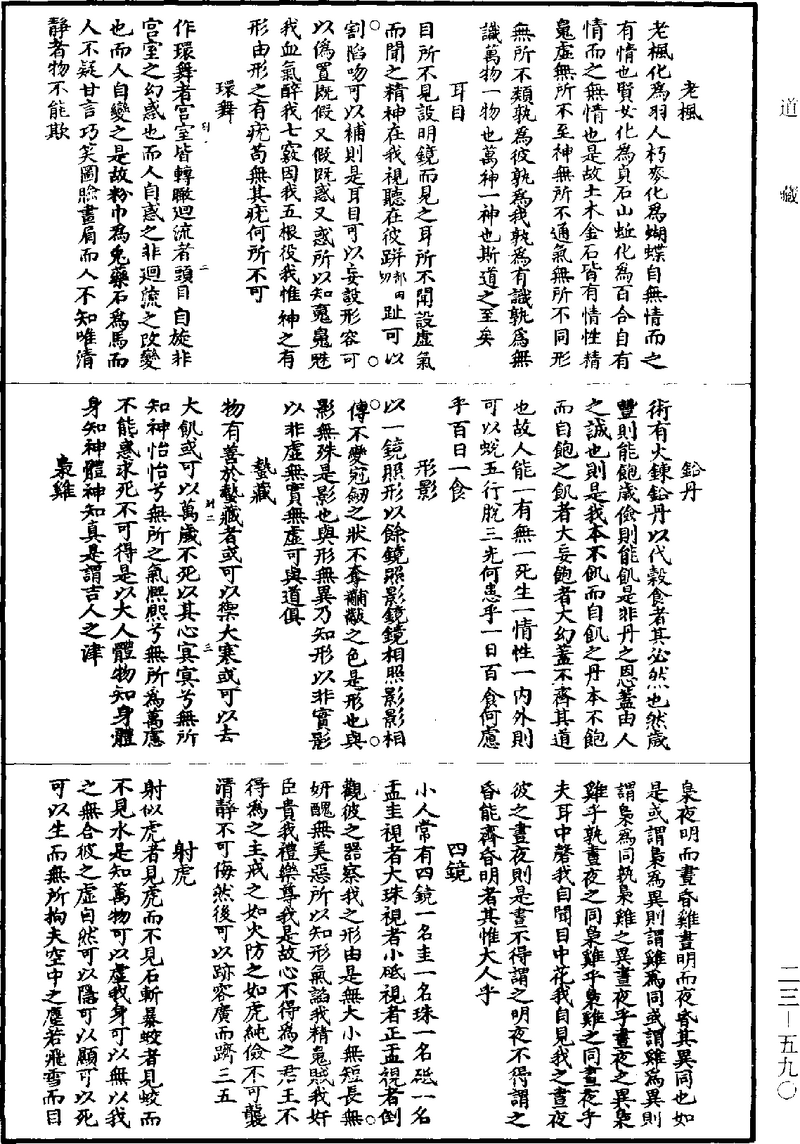 道藏
老楓
老楓化為羽人朽麥化為蝴蝶自無情而之
有情也賢女化為貞石山蚯化為百合自有
情而之無情也是故土木金石皆有情性精
魄虛無所不至神無所不通氣無所不同形
無所不類孰為彼孰為我孰為有識孰為無
識萬物一物也萬神一神也斯道之至矣
耳目
目所不見設明鏡而見之耳所不聞設虛氣
而聞之精神在我視聽在彼跰部田切趾可以
割陷吻可以補則是耳目可以妄設形容可
以偽置既假又假既惑又惑所以知魂魄魅
我血氣醉我七竅囚我五根役我惟神之有
形由形之有疣苟無其疣何所不可
環舞
作環舞者宮室皆轉瞰迴流者頭目自旋非
宮室之幻惑也而人自惑之非迴流之改變
也而人自變之是故粉巾為兔藥石為馬而
人不疑甘言巧笑圖臉畫眉而人不知唯清
靜者物不能欺
鉛丹
術有火鍊鉛丹以代穀食者其必然也然歲
豐則能飽歲儉則能飢是非丹之恩蓋由人
之誠也則是我本不飢而自飢之丹本不飽
而自飽之飢者大妄飽者大幻蓋不齊其道
也故人能一有無一死生一情性一內外則
可以蛻五行脫三光何患乎一日百食何慮
乎百日一食
形影
以一鏡照形以餘鏡照影鏡鏡相照影影相
傳不變冠劒之狀不奪黼黻之色是形也與
影無殊是影也與形無異乃知形以非實影
以非虛無實無虛可與道俱
蟄藏
物有善於蟄藏者或可以禦大寒或可以去
大飢或可以萬歲不死以其心冥冥兮無所
知神怡怡兮無所之氣熙熙兮無所為萬慮
不能惑求死不可得是以大人體物知身體
身知神體神知真是謂吉人之津
梟雞
梟夜明而晝昏雞晝明而夜昏其異同也如
是或謂梟為異則謂雞為同或謂雞為異則
謂梟為同孰梟雞之異晝夜乎晝夜之異梟
雞乎孰晝夜之同梟雞乎梟雞之同晝夜乎
夫耳中磬我自聞目中花我自見我之晝夜
彼之晝夜則是晝不得謂之明夜不得謂之
昏能齊昏明者其惟大人乎
四鏡
小人常有四鏡一名圭一名珠一名砥一名
盂圭視者大珠視者小砥視者正盂視者倒
觀彼之器察我之形由是無大小無短長無
妍醜無美惡所以知形氣諂我精魄賊我奸
臣貴我禮樂尊我是故心不得為之君王不
得為之主戒之如火防之如虎純儉不可襲
清靜不可侮然後可以跡容廣而躋三五
射虎
射似虎者見虎而不見石斬暴蛟者見蛟而
不見水是知萬物可以虛我身可以無以我
之無合彼之虛自然可以隱可以顯可以死
可以生而無所拘夫空中之塵若飛雪而目
二三—五九〇